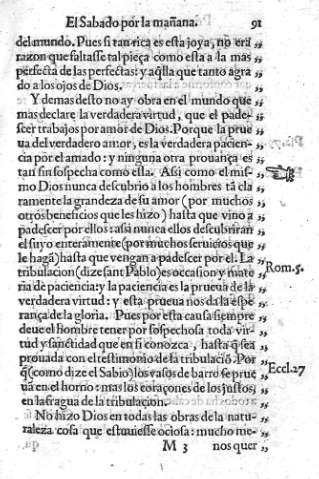 El Sabado por la mañana. 91
del mundo. Pues si tan rica es esta joya, no era
razon que faltasse tal pieça como esta a la mas
perfecta de las perfectas: y aq̃lla que tanto agra
do a los ojos de Dios.
Y demas desto no ay obra en el mundo que
mas declare la verdadera virtud, que el pade-
scer trabajos por amor de Dios. Porque la prue
ua del verdadero amor, es la verdadera pacien-
cia por el amado: y ninguna otra prouança es
tan sin sospecha como ella. Assi como el mis-
mo Dios nunca descubrio a los hombres tã cla
ramente la grandeza de su amor (por muchos
otros beneficios que les hizo) hasta que vino a
padescer por ellos: assi nunca ellos descubriran
el suyo enteramente (por muchos seruicios que
le hagã) hasta que vengan a padescer por el. La
tribulacion (dize sant Pablo) es occasion y mate
ria de paciencia: y la paciencia es la prueua de la
verdadera virtud: y esta prueua nos da la espe
rança de la gloria. Pues por esta causa siempre
deue el hombre tener por sospechosa toda vir-
tud y sanctidad que en si conozca, hasta q̃ sea
prouada con el testimonio de la tribulaciõ. Por
q̃ (como dize el Sabio) los vasos de barro se prue
uã en el horno: mas los coraçones de los justos,
en la fragua de la tribulacion.
No hizo Dios en todas las obras de la natu-
raleza cosa que estuuiesse ociosa: mucho me-
M 3 nos quer
Rom. 5.
Eccl. 27